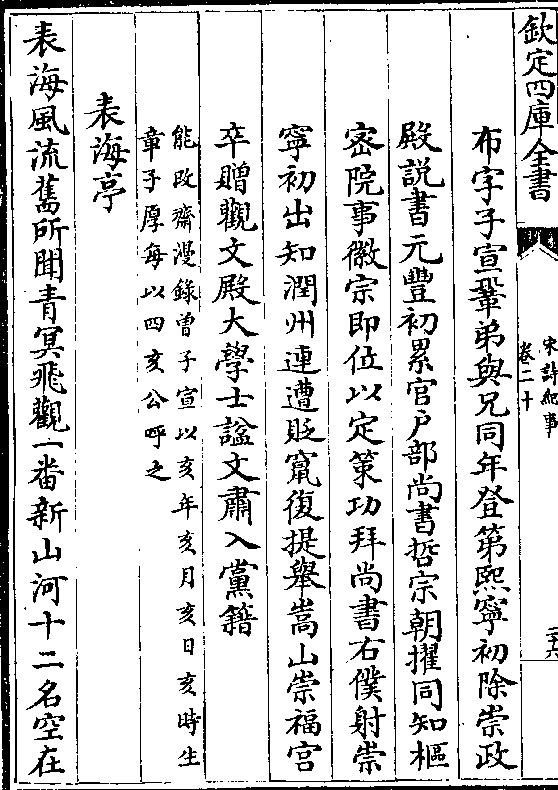 欽定四庫全書
宋詩紀事
卷二十
二十六
布字子宣鞏弟與兄同年登第熙寧初除崇政
殿説書元豐初累官户部尚書哲宗朝擢同知樞
宻院事徽宗即位以定策功拜尚書右僕射崇
寧初出知潤州連遭貶竄復提舉嵩山崇福宫
卒贈觀文殿大學士諡文肅入黨籍
能改齋漫錄曽子宣以亥年亥月亥日亥時生
章子厚每以四亥公呼之
表海亭
表海風流舊所聞青冥飛觀一番新山河十二名空在